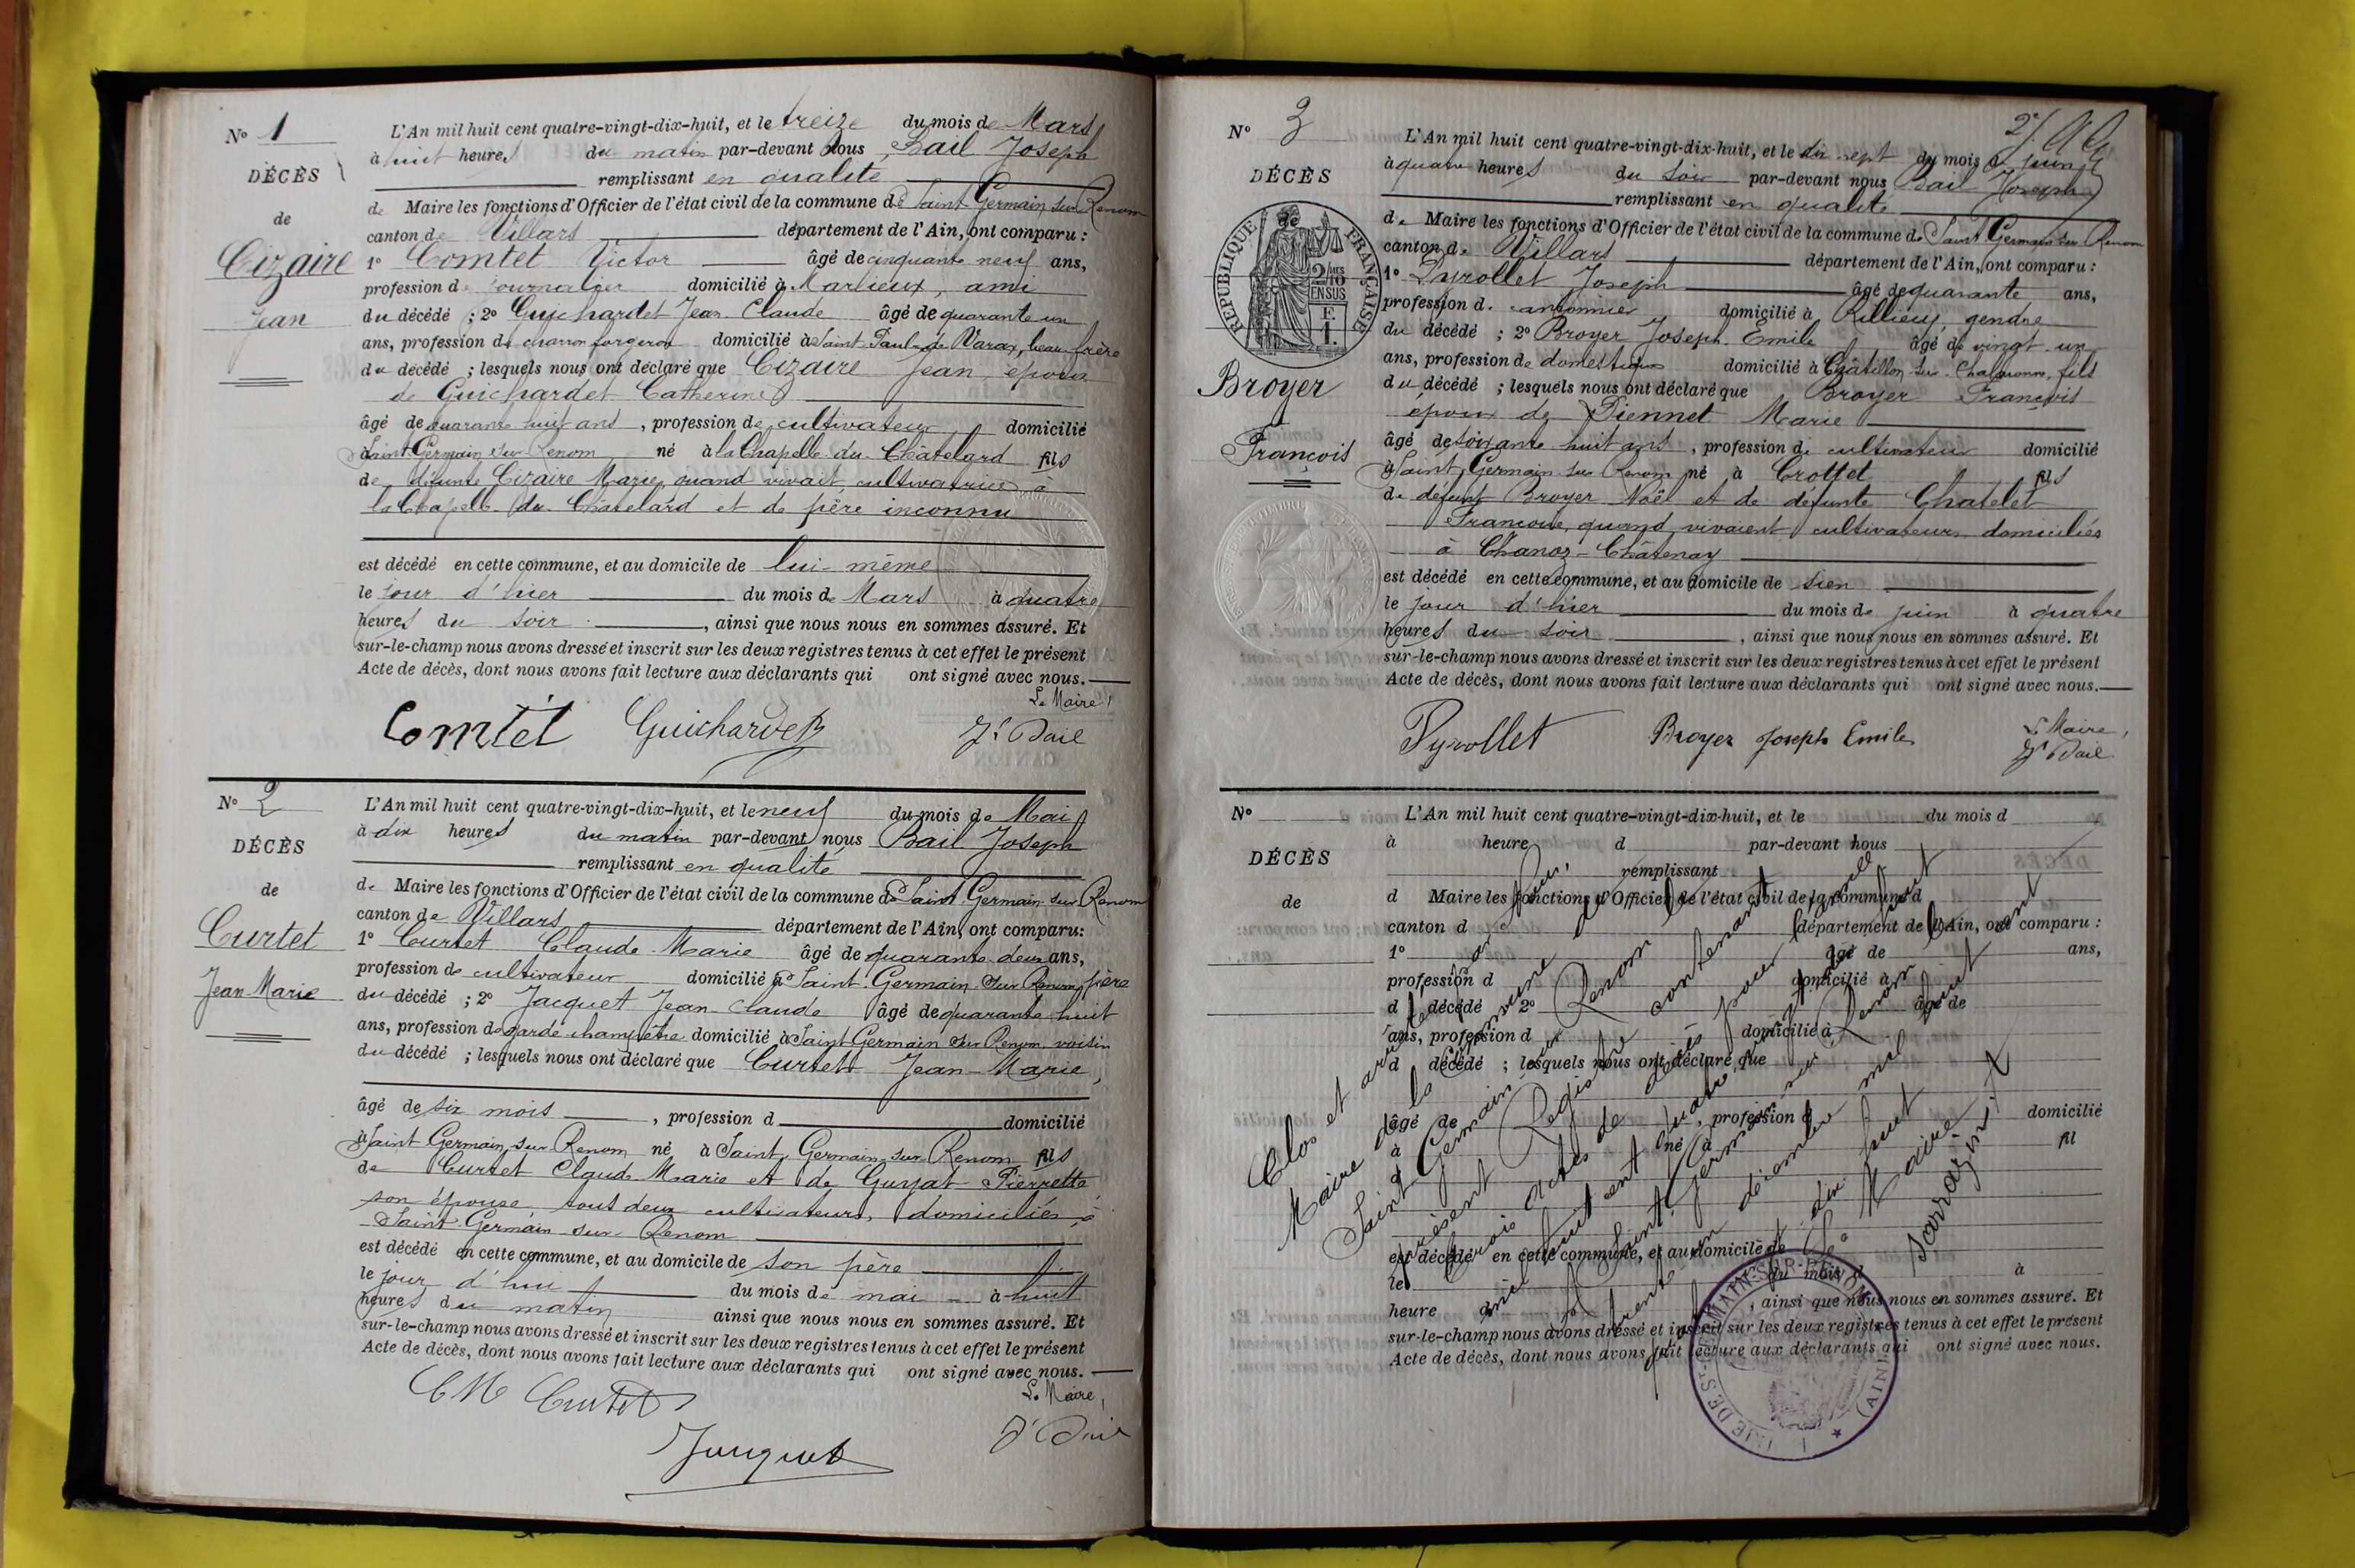 N° 1
DÉCÈS
de
Cizaire
Jean
L'An mil huit cent quatre-vingt-dix-huit, et le treize du mois de Mars
à huit heures du matin par-devant nous Bail Joseph
remplissant en qualité
de Maire les fonctions d'Officier de l'état civil de la commune de Saint Germain sur Renom
canton de Villars département de l'Ain, ont comparu :
1° Comtet Victor âgé de cinquante neuf ans,
profession de journalier domicilié à Marlieux, ami
du décédé ; 2° Guichardet Jean Claude âgé de quarante un
ans, profession de charron forgeron domicilié à Saint Paul de Varax, beau frère
du décédé ; lesquels nous ont déclaré que Cizaire Jean, époux
de Guichardet Catherine
âgé de quarante huit ans, profession de cultivateur domicilié
à Saint Germain sur Renom né à la Chapelle du Châtelard fils
de défunte Cizaire Marie, quand vivait cultivatrice à
la Chapelle du Châtelard et de père inconnu
est décédé en cette commune, et au domicile de lui-même
le jour d'hier du mois de Mars à quatre
heures du soir, ainsi que nous nous en sommes assuré. Et
sur-le-champ nous avons dressé et inscrit sur les deux registres tenus à cet effet le présent
Acte de décès, dont nous avons fait lecture aux déclarants qui ont signé avec nous.
Le Maire,
Comtet Guichardet Jh Bail
N° 2
DÉCÈS
de
Curtet
Jean Marie
L'An mil huit cent quatre-vingt-dix-huit, et le neuf du mois de Mai
à dix heures du matin par-devant nous Bail Joseph
remplissant en qualité
de Maire les fonctions d'Officier de l'état civil de la commune de Saint Germain sur Renom
canton de Villars département de l'Ain, ont comparu:
1° Curtet Claude Marie âgé de quarante deux ans,
profession de cultivateur domicilié à Saint Germain sur Renom, père
du décédé ; 2° Jacquet Jean Claude âgé de quarante huit
ans, profession de garde champêtre domicilié à Saint Germain sur Renom voisin
du décédé ; lesquels nous ont déclaré que Curtet Jean-Marie,
âgé de six mois, profession d domicilié
à Saint Germain sur Renom né à Saint Germain sur Renom fils
de Curtet Claude Marie et de Guyat Pierrette
son épouse, tout deux cultivateurs, domiciliés à
Saint Germain sur Renom
est décédé en cette commune, et au domicile de son père
le jour d'hui du mois de mai à huit
heures du matin ainsi que nous nous en sommes assuré. Et
sur-le-champ nous avons dressé et inscrit sur les deux registres tenus à cet effet le présent
Acte de décès, dont nous avons fait lecture aux déclarants qui ont signé avec nous.
Le Maire,
CM Curtet Jh Bail
Jacquet
N° 3
DÉCÈS
RÉPUBLIQUE FRANÇAISE
Broyer
François
L'An mil huit cent quatre-vingt-dix-huit, et le dix sept du mois de juin
à quatre heures du soir par-devant nous Bail Joseph
remplissant en qualité
de Maire les fonctions d'Officier de l'état civil de la commune de Saint Germain sur Renom
canton de Villars département de l'Ain, ont comparu :
1° Pyrollet Joseph âgé de quarante ans,
profession de cantonnier domicilié à Rillieux, gendre
du décédé ; 2° Broyer Joseph Emile âgé de vingt-un
ans, profession de domestique domicilié à Châtillon-sur-Chalaronne, fils
du décédé ; lesquels nous ont déclaré que Broyer François
époux de Piennet Marie
âgé de soixante huit ans, profession de cultivateur domicilié
à Saint Germain sur Renom né à Crottet fils
de défunt Broyer Noël et de défunte Chatelet
Françoise, quand vivaient cultivateurs domiciliés
à Chanoz-Châtenay
est décédé en cette commune, et au domicile de sien
le jour d'hier du mois de juin à quatre
heures du soir, ainsi que nous nous en sommes assuré. Et
sur-le-champ nous avons dressé et inscrit sur les deux registres tenus à cet effet le présent
Acte de décès, dont nous avons fait lecture aux déclarants qui ont signé avec nous.
Pyrollet Broyer Joseph Emile Le Maire,
Jh Bail
N°
DÉCÈS
de
L'An mil huit cent quatre-vingt-dix-huit, et le du mois d
à heure d par-devant nous
remplissant
d Maire les fonctions d'Officier de l'état civil de la commune d
canton d département de l'Ain, ont comparu :
1° âgé de ans,
profession d domicilié à
d décédé 2° âgé de
ans, profession d domicilié à
d décédé ; lesquels nous ont déclaré que
âgé de, profession d domicilié
à né à fil
d
est décédé en cette commune, et au domicile de
le du mois d à
heure d, ainsi que nous nous en sommes assuré. Et
sur-le-champ nous avons dressé et inscrit sur les deux registres tenus à cet effet le présent
Acte de décès, dont nous avons fait lecture aux déclarants qui ont signé avec nous.
Clos et arrêté par nous,
Maire de la Commune de
Saint Germain sur Renom le
présent Registre contenant
trois actes de décès pour l'année
mil huit cent quatre vingt dix huit
A Saint Germain sur Renom
trente un décembre mil huit cent
dix huit
Le Maire
Sarrazin